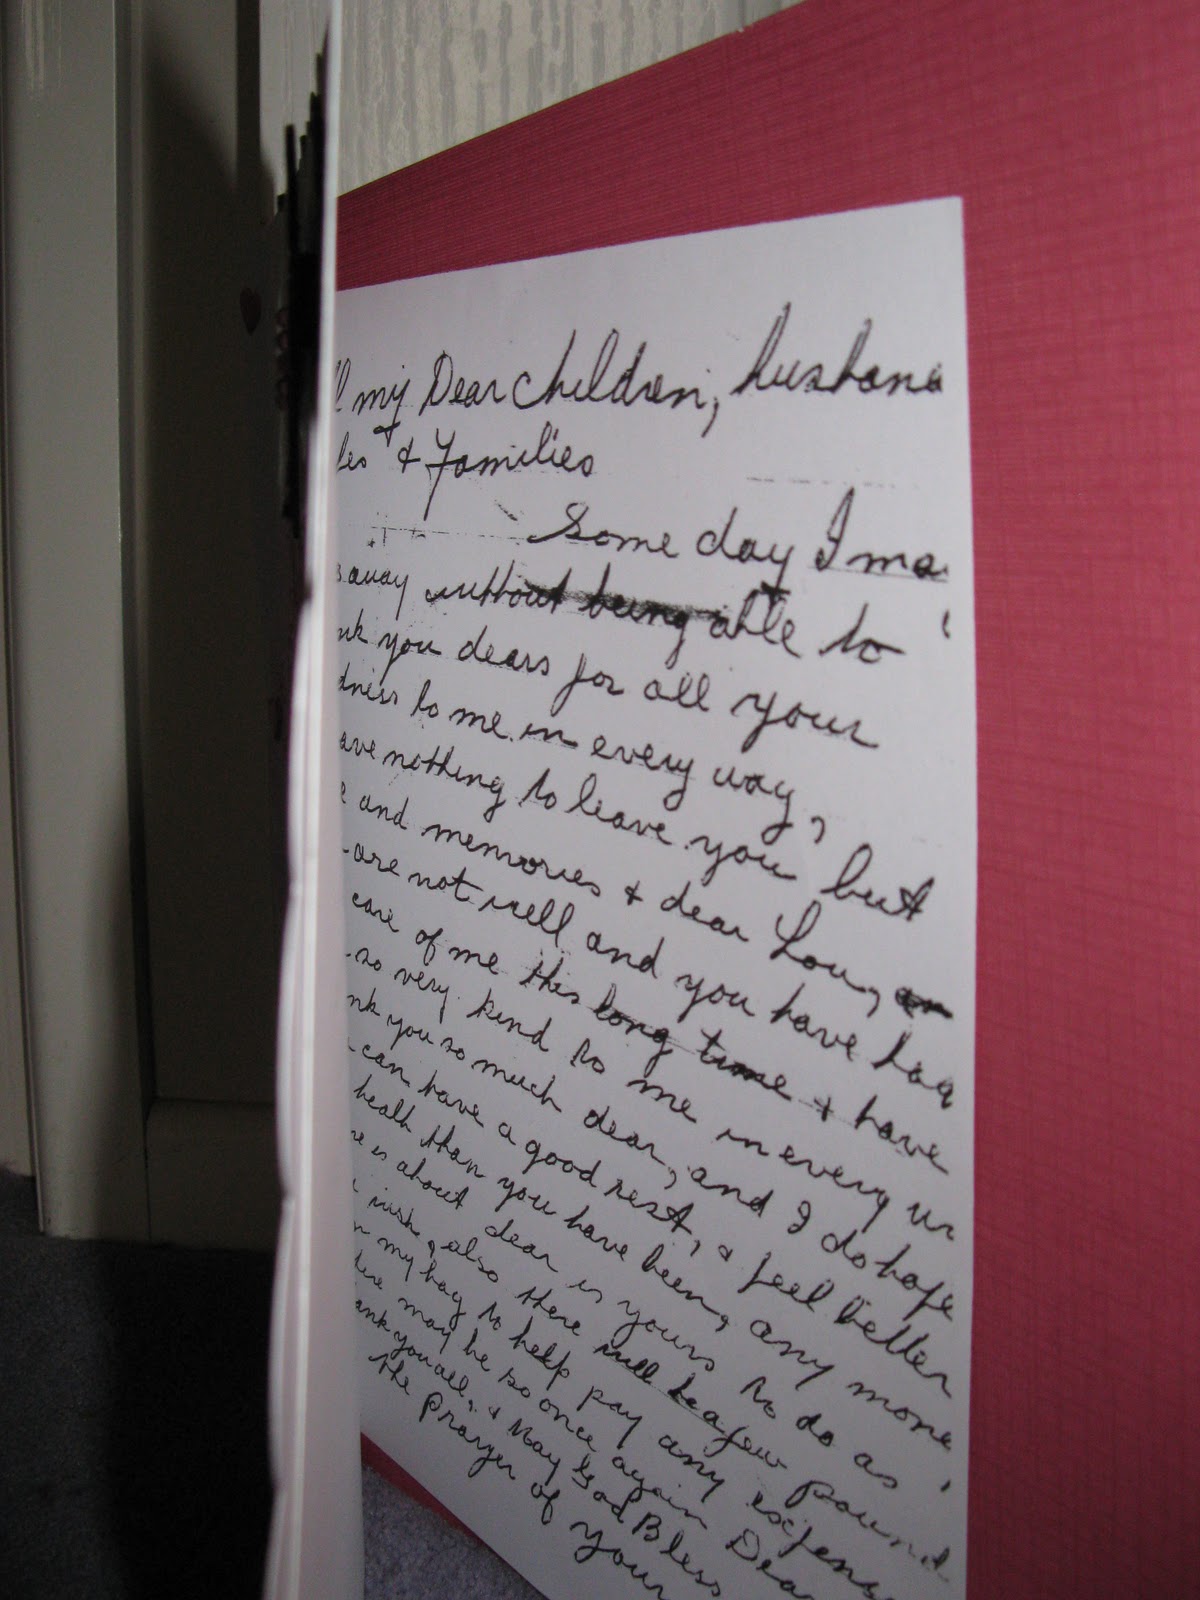 my Dear Children, husband
& Families
Some day I ma
away without being able to
you dears for all your
dness to me in every way,
ave nothing to leave you but
and memories & dear Lou,
are not well and you have had
care of me this long time & have
so very kind to me in every w
nk you so much dear, and I do hope
can have a good rest, & feel better
health than you have been, any mone
is about dear is yours to do as
wish, also there will be a few pound
my bag to help pay any expens
may be so once again Dear
ank you all, & May God Bless
the prayer of your